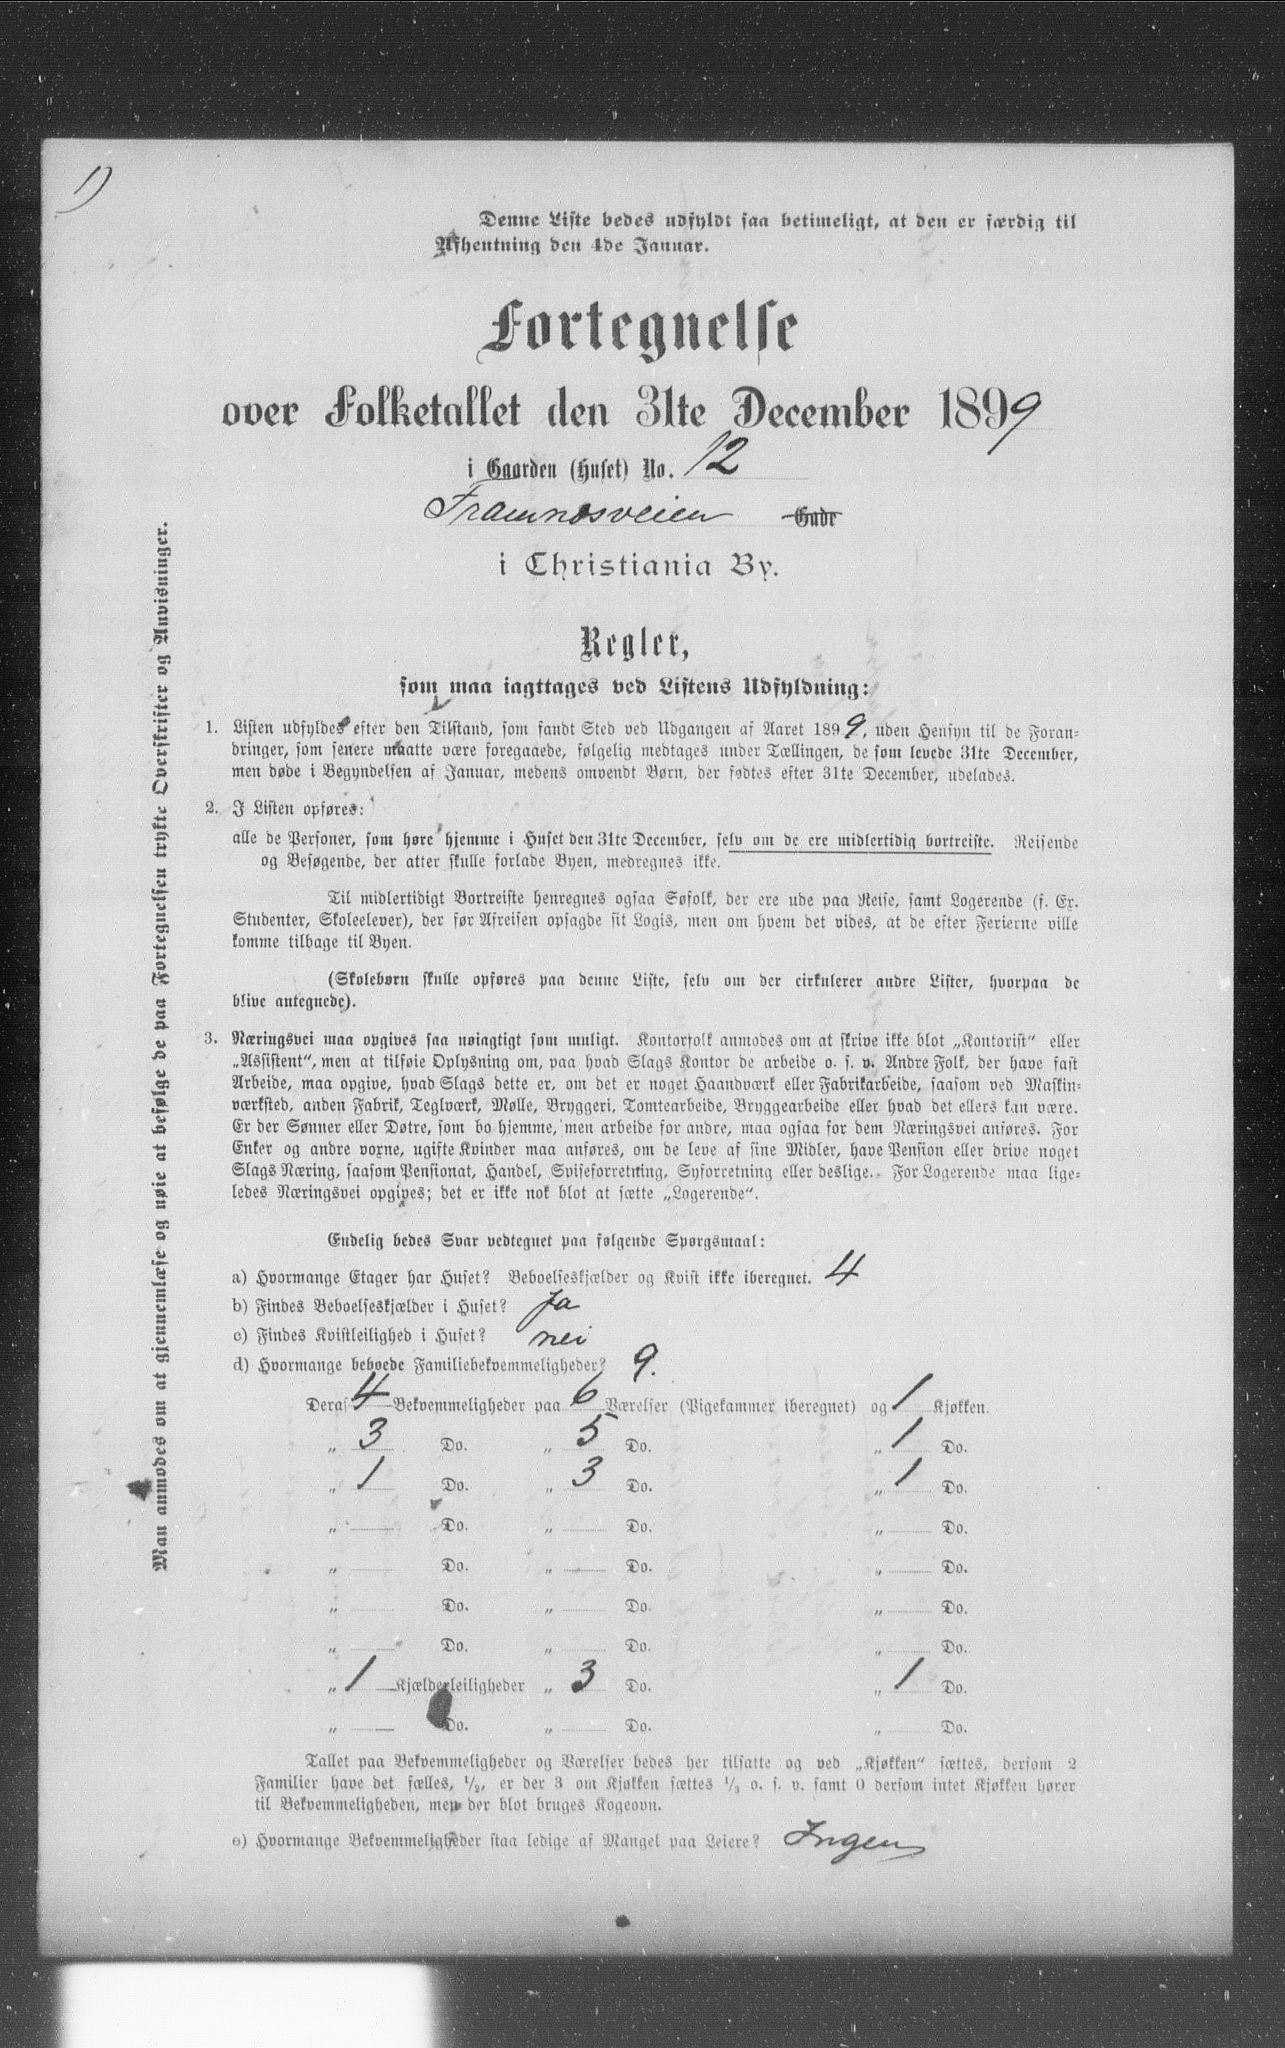 1)
Denne Liste bedes udfyldt saa betimeligt, at den er færdig til
Afhentning den 4de Januar.
Fortegnelse
over Folketallet den 31te December 1899
i Gaarden (Huset) No. 12
Framnæsveien Gade
i Christiania By.
Regler,
som maa iagttages ved Listens Udfyldning:
1. Listen udfyldes efter den Tilstand, som fandt Sted ved Udgangen af Aaret 1899, uden Hensyn til de Foran-
dringer, som senere maatte være foregaaede, følgelig medtages under Tællingen, de som levede 31te December,
men døde i Begyndelsen af Januar, medens omvendt Børn, der fødtes efter 31te December, udelades.
2. I Listen opføres:
alle de Personer, som høre hjemme i Huset den 31te December, selv om de ere midlertidig bortreiste. Reisende
og Besøgende, der atter skulle forlade Byen, medregnes ikke.
Til midlertidigt Bortreiste henregnes ogsaa Søfolk, der ere ude paa Reise, samt Logerende (f. Ex.
Studenter, Skoleelever), der før Afreisen opsagde sit Logis, men om hvem det vides, at de efter Ferierne ville
komme tilbage til Byen.
(Skolebørn skulle opføres paa denne Liste, selv om der cirkulerer andre Lister, hvorpaa de
blive antegnede).
3. Næringsvei maa opgives saa nøiagtigt som muligt. Kontorfolk anmodes om at skrive ikke blot „Kontorist“ eller
„Assistent“, men at tilføie Oplysning om, paa hvad Slags Kontor de arbeide o. s. v. Andre Folk, der have fast
Arbeide, maa opgive, hvad Slags dette er, om det er noget Haandværk eller Fabrikarbeide, saasom ved Maskin-
værksted, anden Fabrik, Teglværk, Mølle, Bryggeri, Tomtearbeide, Bryggearbeide eller hvad det ellers kan være.
Er der Sønner eller Døtre, som bo hjemme, men arbeide for andre, maa ogsaa for dem Næringsvei anføres. For
Enker og andre voxne, ugifte Kvinder maa anføres, om de leve af sine Midler, have Pension eller drive noget
Slags Næring, saasom Pensionat, Handel, Spiseforretning, Syforretning eller deslige. For Logerende maa lige-
ledes Næringsvei opgives; det er ikke nok blot at sætte „Logerende“.
Endelig bedes Svar vedtegnet paa følgende Spørgsmaal:
a) Hvormange Etager har Huset? Beboelseskjælder og Kvist ikke iberegnet. 4
b) Findes Beboelseskjælder i Huset? Ja
c) Findes Kvistleilighed i Huset? nei
d) Hvormange beboede Familiebekvemmeligheder? 9.
Deraf 4 Bekvemmeligheder paa 6 Værelser (Pigekammer iberegnet) og 1 Kjøkken.
„ 3 Do. „ 5 Do. „ 1 Do.
„ 1 Do. „ 3 Do. „ 1 Do.
„ Do. „ Do. „ Do.
„ Do. „ Do. „ Do.
„ Do. „ Do. „ Do.
„ Do. „ Do. „ Do.
„ 1 Kjælderleiligheder „ 3 Do. „ 1 Do.
„ Do. „ Do. „ Do.
Tallet paa Bekvemmeligheder og Værelser bedes her tilsatte og ved „Kjøkken“ sættes, dersom 2
Familier have det fælles, 1/2, er der 3 om Kjøkken sættes 1/3 o. s. v. samt 0 dersom intet Kjøkken hører
til Bekvemmeligheden, men der blot bruges Kogeovn.
e) Hvormange Bekvemmeligheder staa ledige af Mangel paa Leiere? Ingen
Man anmodes om at gjennemlæse og nøie at befølge de paa Fortegnelsen trykte Overskrifter og Anvisninger.